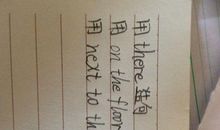 用 there 造句
用 on the floor
用 next to th